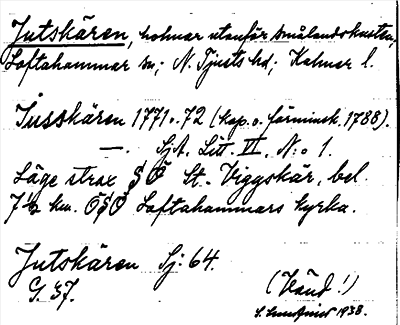 Jutskären, holmar utanför smålandskusten,
Loftahammar sn; N. Tjusts hd; Kalmar l.
Jusskären 1771 o. 72 (kop. o. förminsk. 1788).
—. SjA. Litt. VI, N:o 1.
Läge strax SÖ St. Viggskär, bel.
7½ km. ÖSÖ Loftahammars kyrka.
Jutskären Sj: 64.
G. 37.
(Vänd!)
S. Lundqvist 1938.